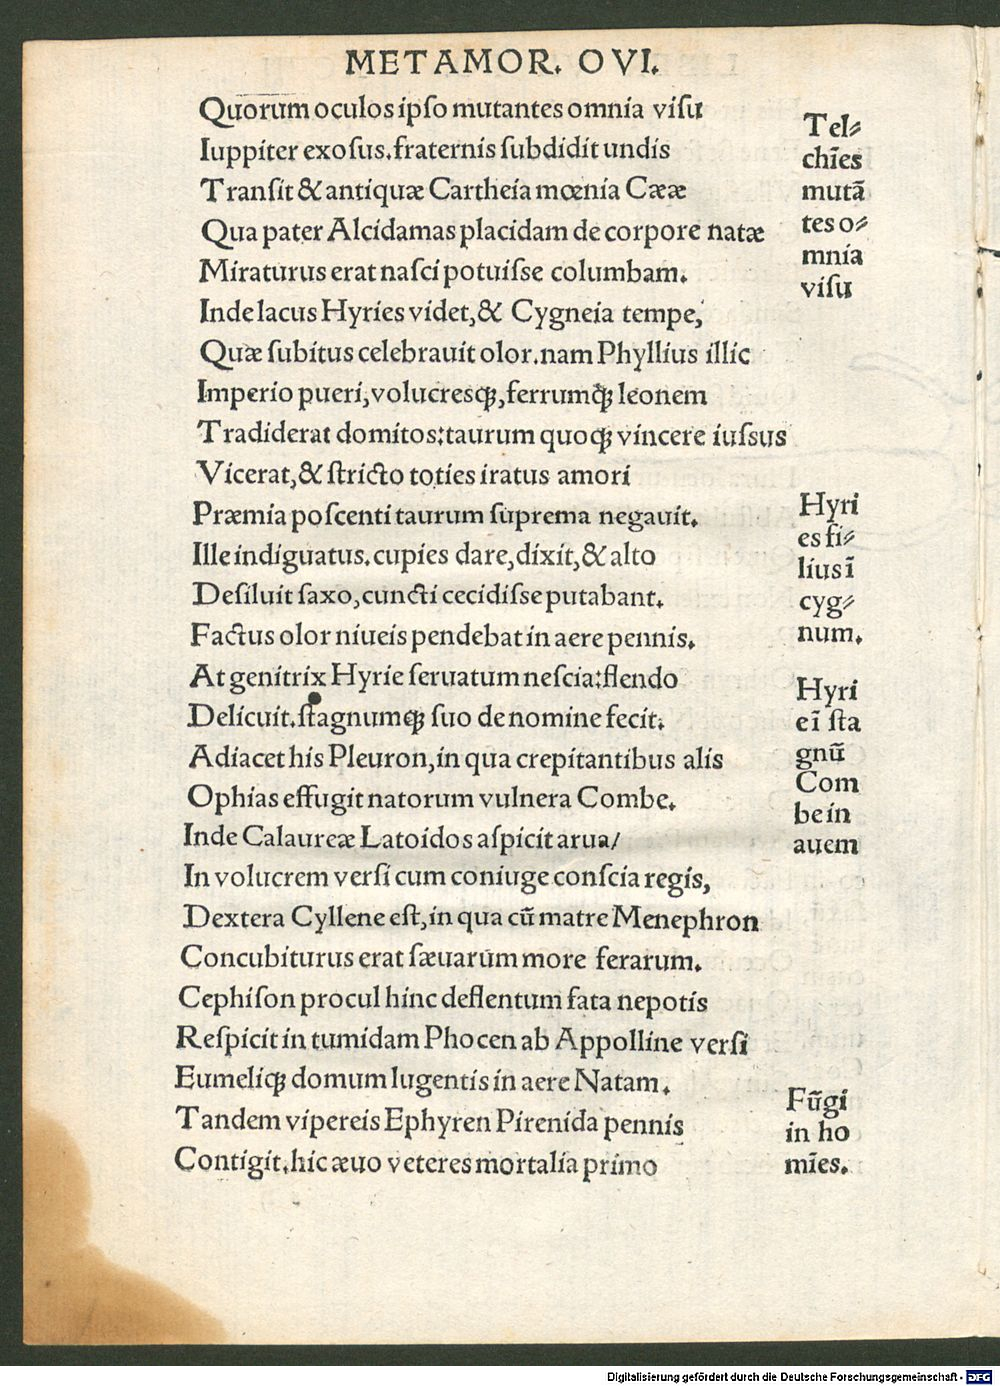 METAMOR. OVI.
Quorum oculos ipſo mutantes omnia viſu
Iuppiter exoſus.fraternis ſubdidit undis
Tranſit & antiquæ Cartheia mœnia Cææ
Qua pater Alcidamas placidam de corpore natæ
Miraturus erat naſci potuiſse columbam.
Inde lacus Hyries videt,& Cygneia tempe,
Quæ ſubitus celebravit olor.nam Phyllius illic
Imperio pueri,volucresqꝫ,ferrumqꝫ leonem
Tradiderat domitos:taurum quoqꝫ vincere iuſsus
Vicerat,& ſtricto toties iratus amori
Præmia poſcenti taurum ſuprema negauit.
Ille indiguatus.cupies dare,dixit,& alto
Deſiluit ſaxo,cuncti cecidiſse putabant.
Factus olor niueis pendebat in aere pennis.
At genitrix Hyrie ſeruatum neſcia:flendo
Delicuit.ſtagnumqꝫ ſuo de nomine fecit.
Adiacet his Pleuron,in qua crepitantibus alis
Ophias effugit natorum vulnera Combe.
Inde Calaureæ Latoidos aſpicit arua/
In volucrem verſi cum coniuge conſcia regis,
Dextera Cyllene eſt,in qua cū matre Menephron
Concubiturus erat ſæuarum more ferarum.
Cephiſon procul hinc deflentum fata nepotis
Reſpicit in tumidam Phocen ab Appolline verſi
Eumeliqꝫ domum lugentis in aere Natam.
Tandem vipereis Ephyren Pirenida pennis
Contigit.hic æuo veteres mortalia primo
Tel⸗
chīes
mutā
tes o⸗
mnia
viſu
Hyri
es fi⸗
lius ī
cyg⸗
num.
Hyri
eī ſta
gnū
Com
be in
auem
Fūgi
in ho
mīes.
Digitalisierung gefördert durch die Deutsche Forschungsgemeinschaft - DFG